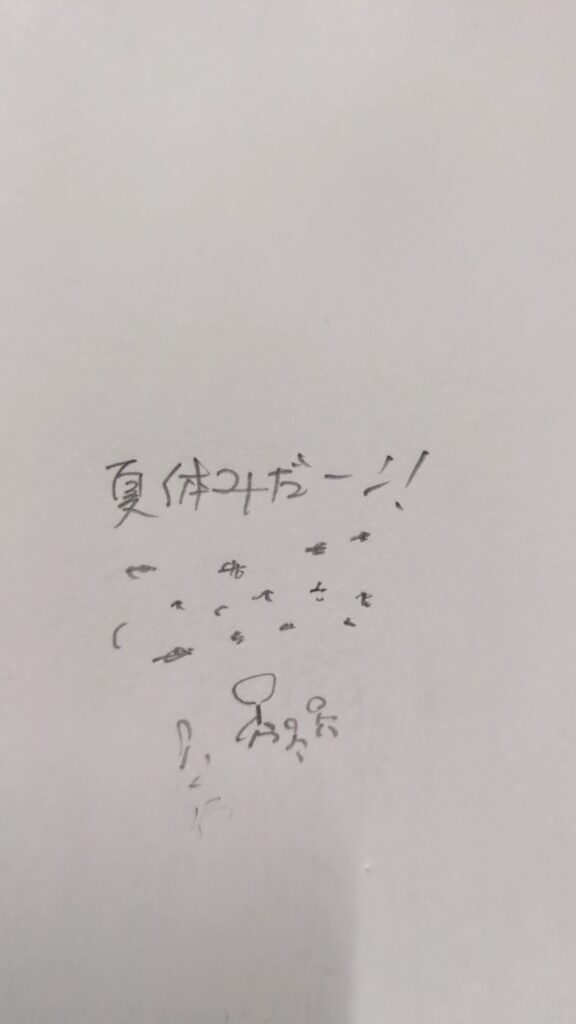 夏休みだー!!